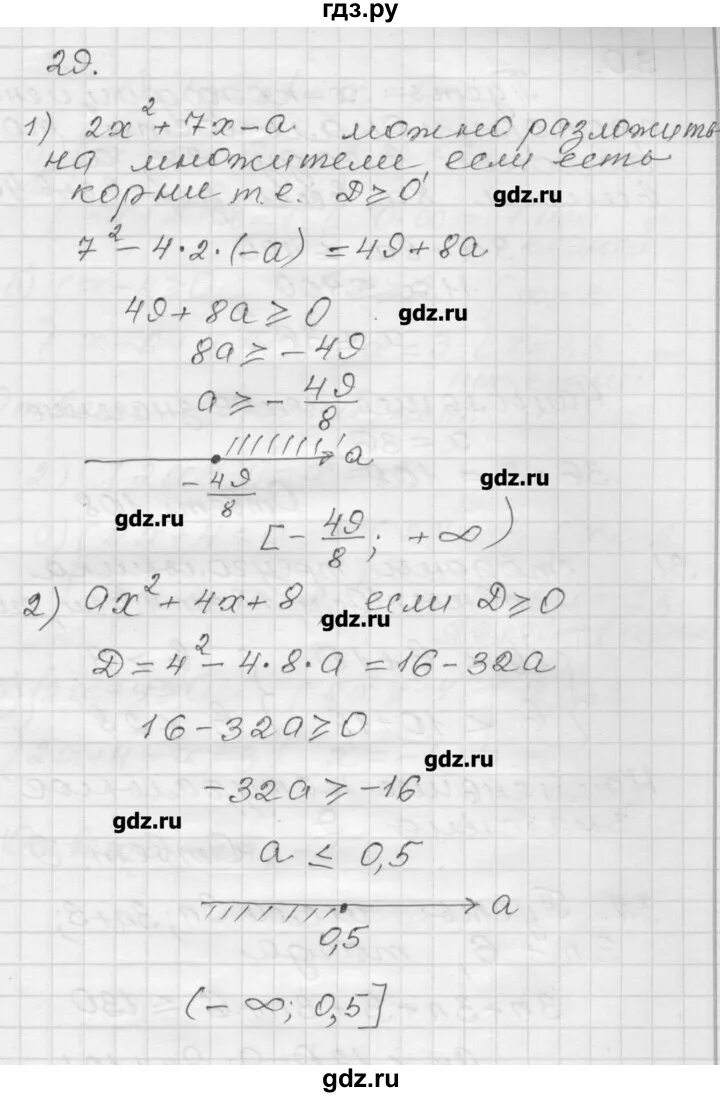 гдз.ру
29.
1) 2x² + 7x - a можно разложить
на множители если есть
корни т.е. D ≥ 0
gdz.ru
7² - 4·2·(-a) = 49 + 8a
49 + 8a ≥ 0
gdz.ru
8a ≥ -49
a ≥ - 49/8
a
- 49/8
gdz.ru
gdz.ru
[- 49/8; +∞)
2) ax² + 4x + 8 если D ≥ 0
gdz.ru
D = 4² - 4·8·a = 16 - 32a
16 - 32a ≥ 0
gdz.ru
-32a ≥ -16
gdz.ru
a ≤ 0,5
a
0,5
(-∞; 0,5]
gdz.ru